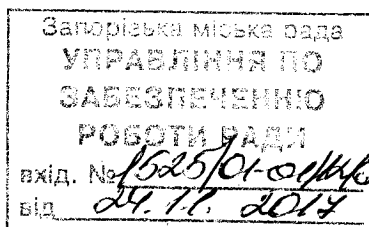 Запорізька міська рада
УПРАВЛІННЯ ПО
ЗАБЕЗПЕЧЕННЮ
РОБОТИ РАДИ
вхід. №1525/01-01/
від 24.11.2017